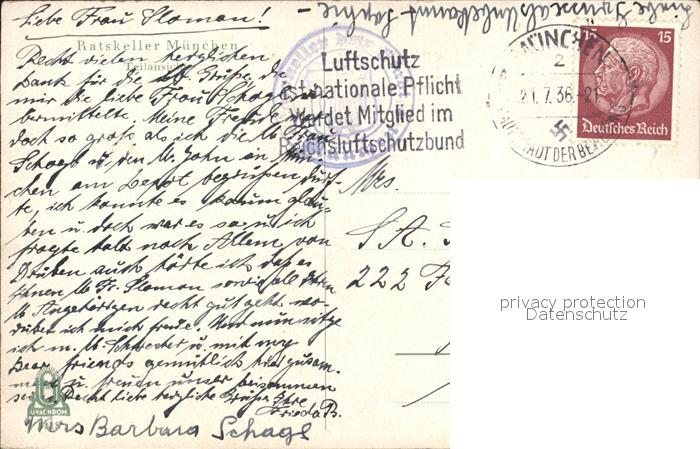 Liebe Frau Sloman!
Liebe Grüsse als Unbekannt Sophie –
Ratskeller München
Teilansicht
Recht vielen herzlichen
Dank für die Grüße, die
mir die liebe Frau Schagl
vermittelte. Meine Freude
doch so groß als ich die Frau
Schagl u. den John in Mün-
chen am begrüßen durf-
te, ich konnte es kaum glau-
ben u. doch war es so u. ich
fragte bald nach Allem von
Drüben auch hörte ich daß es
Ihnen Fr. Sloman sowie all Ihren
Angehörigen recht gut geht wo-
rüber ich mich freue. Und nun sitze
ich m. Schwester u. mit my
Dear friends gemütlich hier zusam-
men u. freuen unser beisammen
sein. Recht liebe herzliche Grüße Ihre
Frieda B.
Mrs Barbara Schagl
UVACHROM
Luftschutz
ist nationale Pflicht
Werdet Mitglied im
Reichsluftschutzbund
MÜNCHEN
2
21.7.36.-21
HAUPTSTADT DER BEWE
15 15
Deutsches Reich
Mrs.
222
privacy protection
Datenschutz